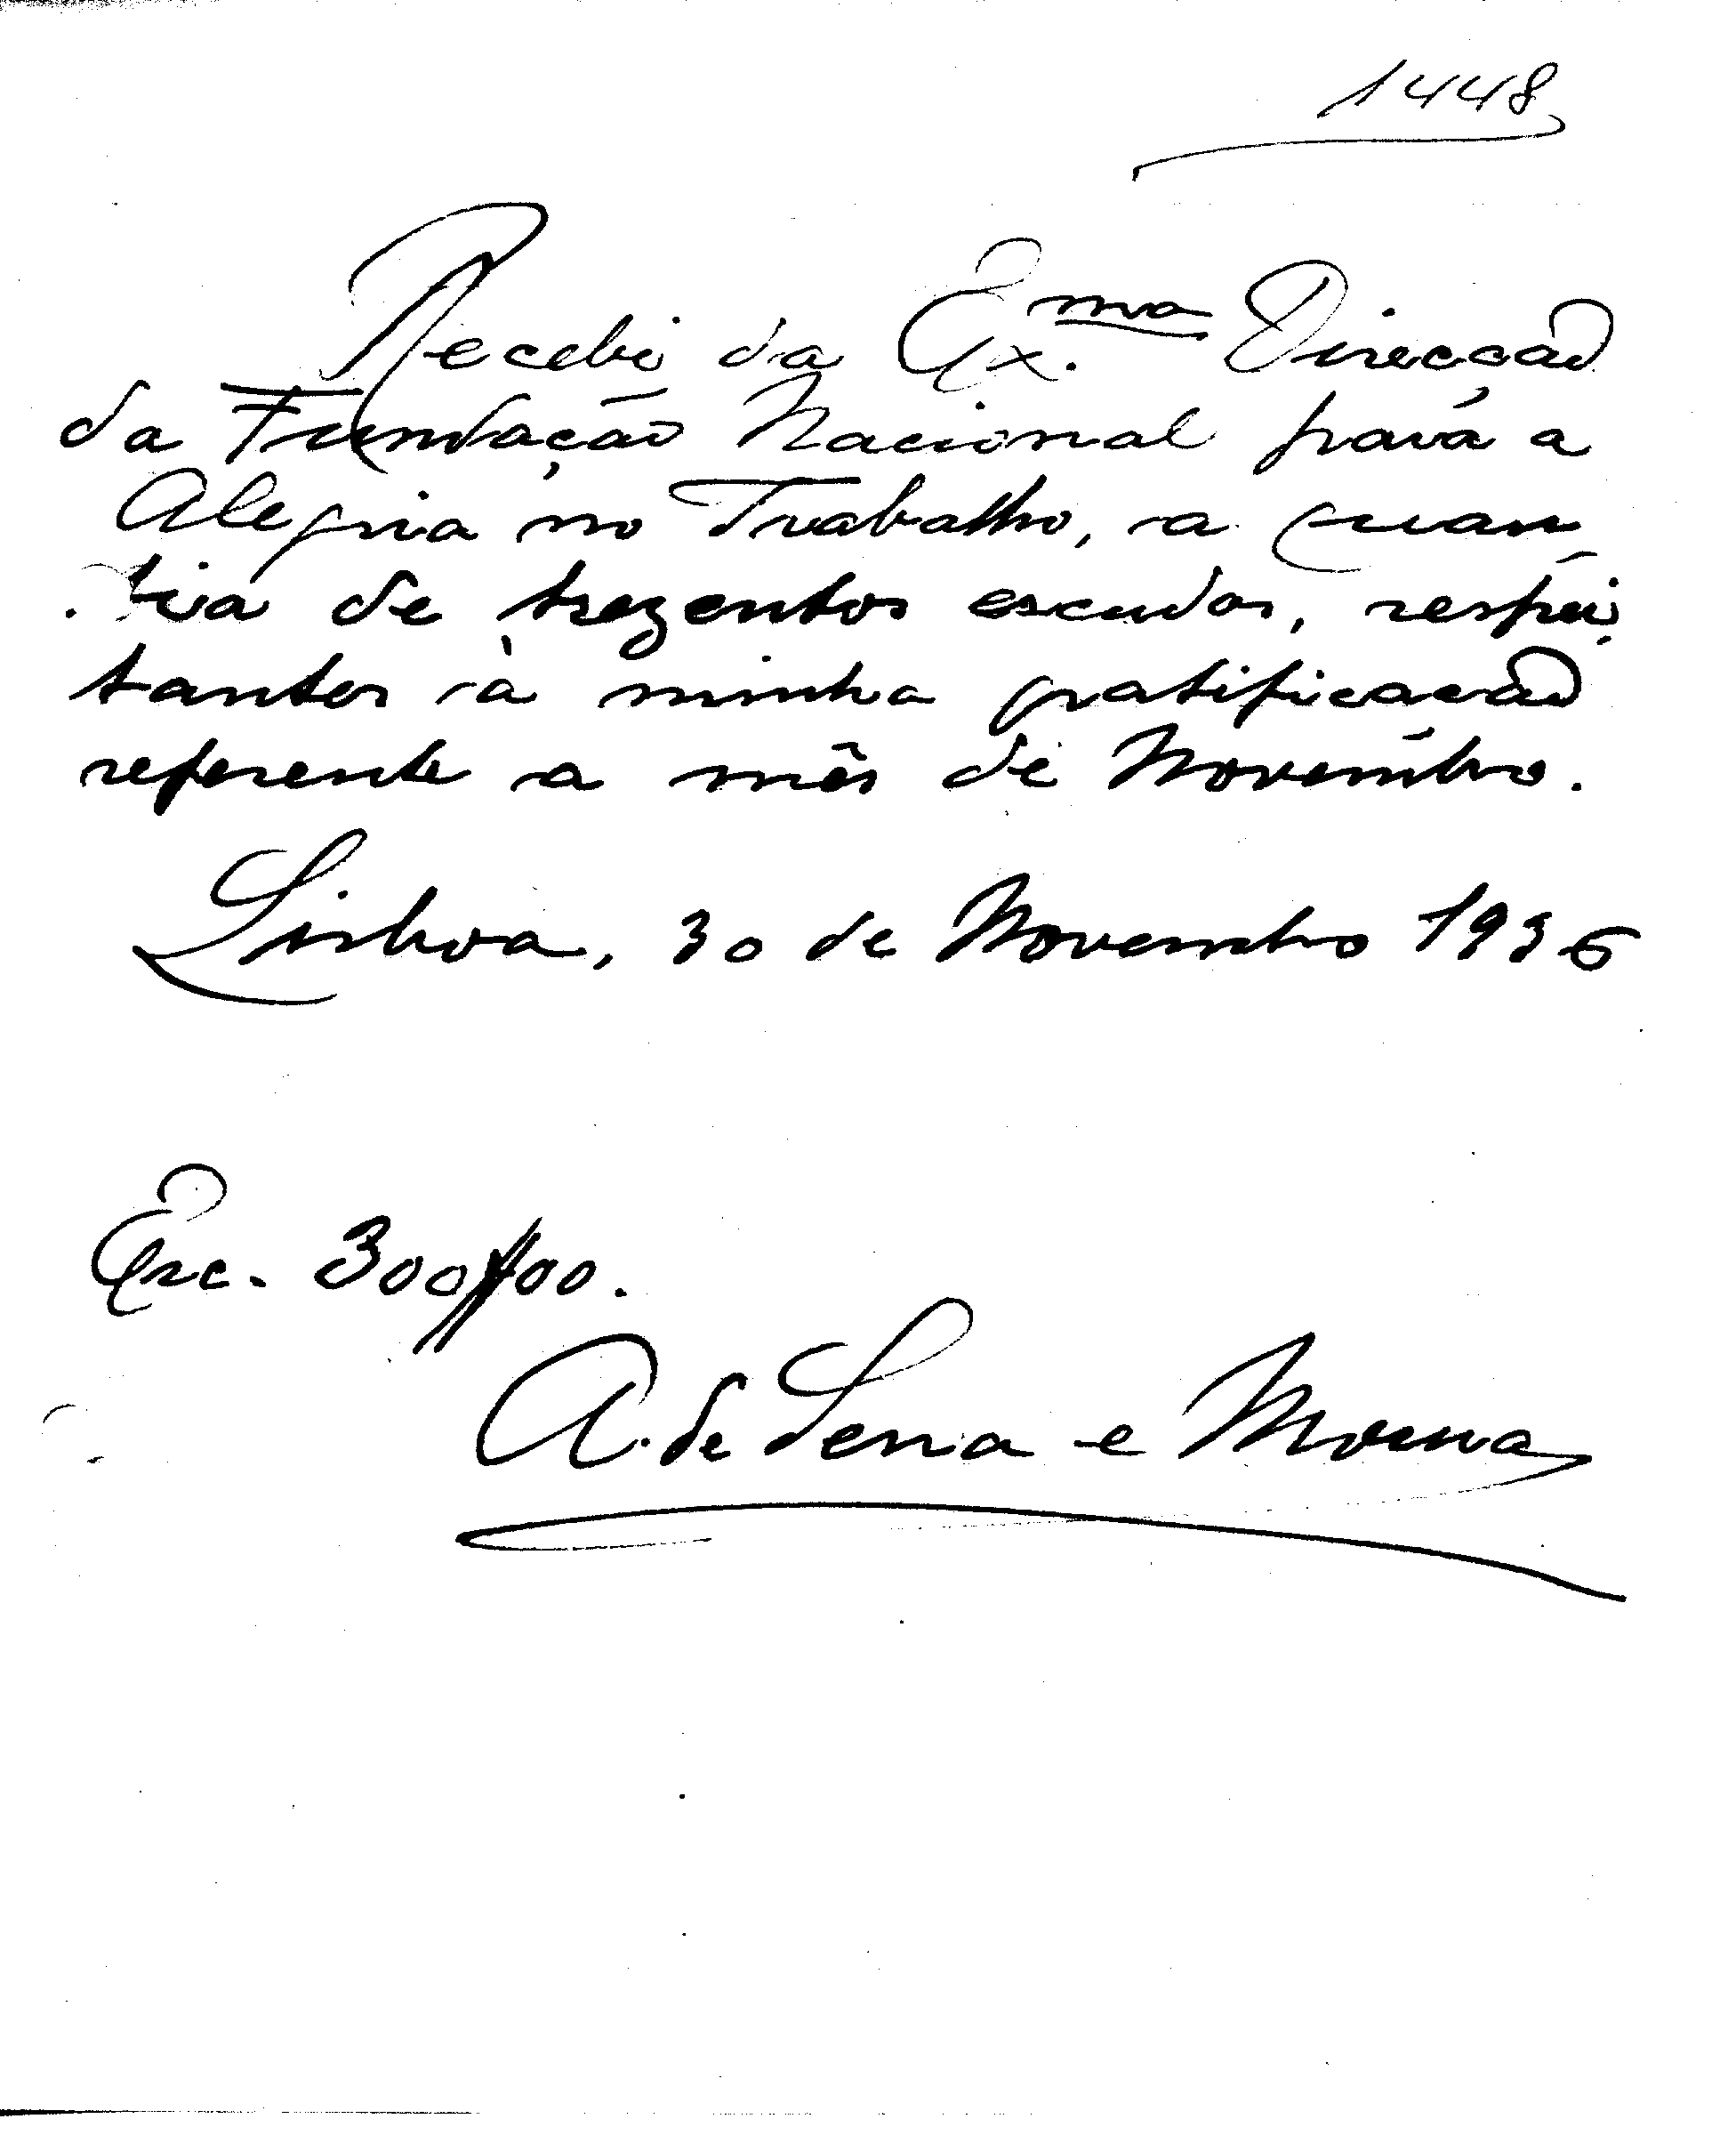 1448
Recebi da Ex.ma Direcção
da Fundação Nacional para a
Alegria no Trabalho, a quan
tia de trezentos escudos, respei
tantes à minha gratificação
referente a mês de Novembro.
Lisboa, 30 de Novembro 1936
Esc. 300$00.
A. de Sena e Morna